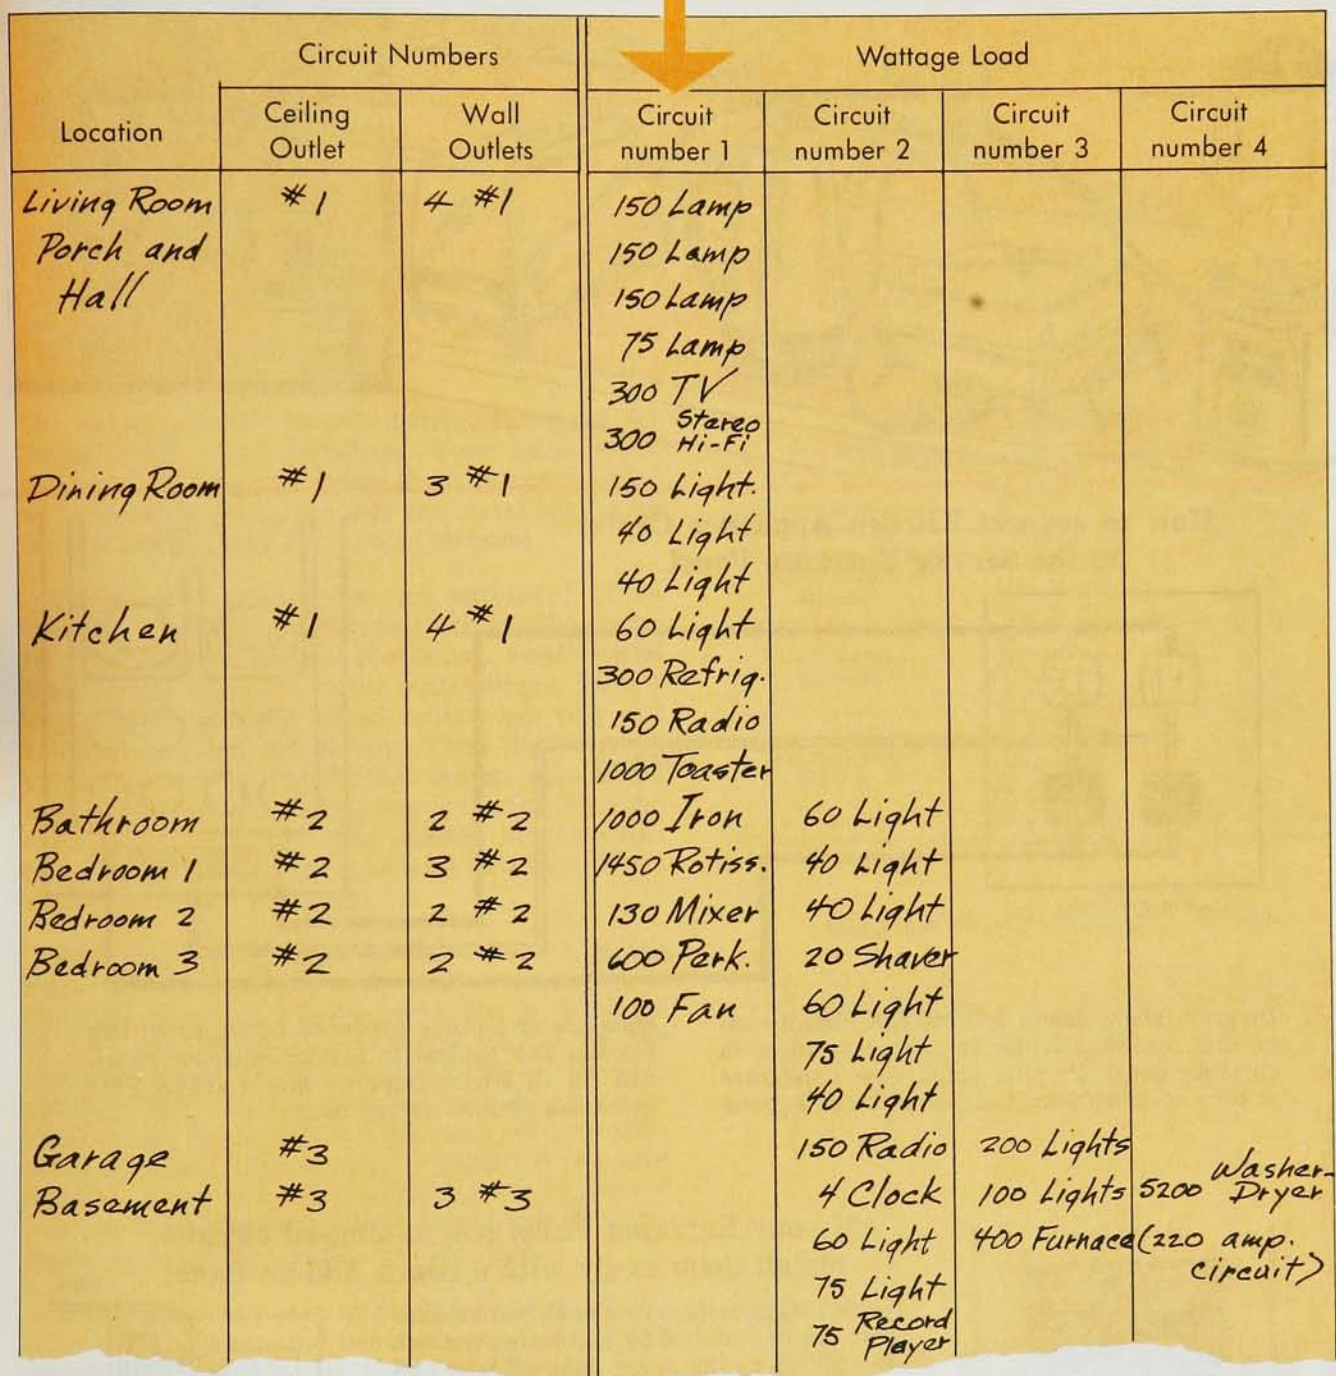 Circuit Numbers Wattage Load
Location Ceiling Outlet Wall Outlets Circuit number 1 Circuit number 2 Circuit number 3 Circuit number 4
Living Room #1 4 #1 150 Lamp
Porch and 150 Lamp
Hall 150 Lamp
75 Lamp
300 TV
300 Stereo Hi-Fi
Dining Room #1 3 #1 150 Light.
40 Light
40 Light
Kitchen #1 4 #1 60 Light
300 Refrig.
150 Radio
1000 Toaster
Bathroom #2 2 #2 1000 Iron 60 Light
Bedroom 1 #2 3 #2 1450 Rotiss. 40 Light
Bedroom 2 #2 2 #2 130 Mixer 40 Light
Bedroom 3 #2 2 #2 600 Perk. 20 Shaver
100 Fan 60 Light
75 Light
40 Light
Garage #3 150 Radio 200 Lights
Basement #3 3 #3 4 Clock 100 Lights 5200 Washer-Dryer
60 Light 400 Furnace (220 amp. circuit)
75 Light
75 Record Player